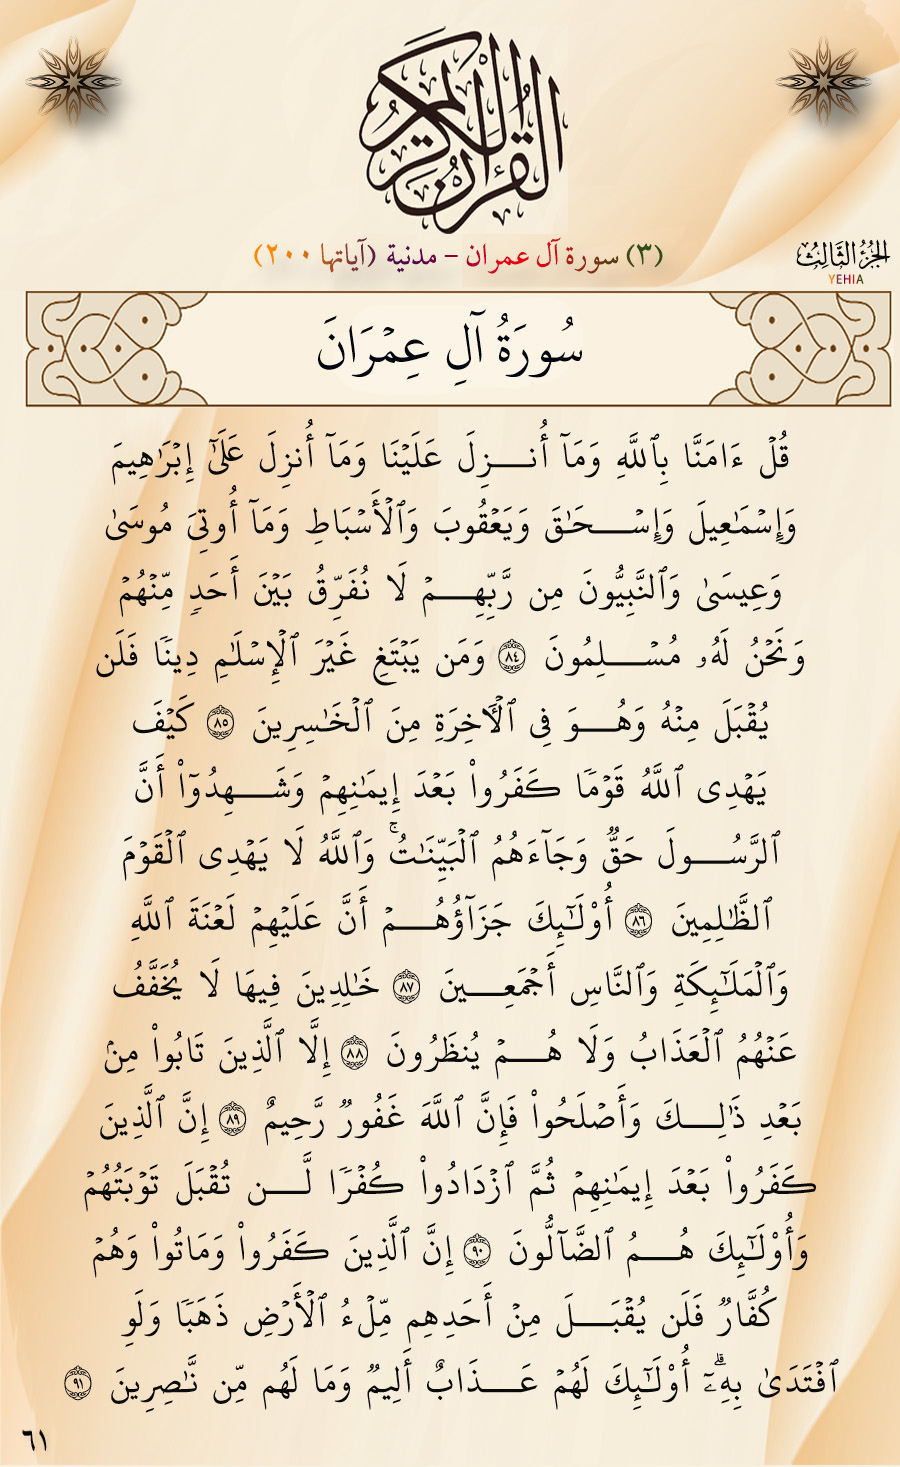 القرآن الكريم
(٣) سورة آل عمران – مدنية (آياتها ٢٠٠)
الجزء الثالث
YEHIA
سُورَةُ آلِ عِمْرَانَ
قُلْ ءَامَنَّا بِٱللَّهِ وَمَآ أُنـزِلَ عَلَيْنَا وَمَآ أُنزِلَ عَلَىٰٓ إِبْرَٰهِيمَ
وَإِسْمَٰعِيلَ وَإِسْـحَٰقَ وَيَعْقُوبَ وَٱلْأَسْبَاطِ وَمَآ أُوتِىَ مُوسَىٰ
وَعِيسَىٰ وَٱلنَّبِيُّونَ مِن رَّبِّهِـمْ لَا نُفَرِّقُ بَيْنَ أَحَدٍ مِّنْهُمْ
وَنَحْنُ لَهُۥ مُسْـلِمُونَ ٨٤ وَمَن يَبْتَغِ غَيْرَ ٱلْإِسْلَٰمِ دِينًا فَلَن
يُقْبَلَ مِنْهُ وَهُـوَ فِى ٱلْءَاخِرَةِ مِنَ ٱلْخَٰسِرِينَ ٨٥ كَيْفَ
يَهْدِى ٱللَّهُ قَوْمًا كَفَرُوا۟ بَعْدَ إِيمَٰنِهِمْ وَشَـهِدُوٓا۟ أَنَّ
ٱلرَّسُـولَ حَقٌّ وَجَآءَهُمُ ٱلْبَيِّنَٰتُ ۚ وَٱللَّهُ لَا يَهْدِى ٱلْقَوْمَ
ٱلظَّٰلِمِينَ ٨٦ أُو۟لَٰٓئِكَ جَزَآؤُهُـمْ أَنَّ عَلَيْهِمْ لَعْنَةَ ٱللَّهِ
وَٱلْمَلَٰٓئِكَةِ وَٱلنَّاسِ أَجْمَعِـينَ ٨٧ خَٰلِدِينَ فِيهَا لَا يُخَفَّفُ
عَنْهُمُ ٱلْعَذَابُ وَلَا هُـمْ يُنظَرُونَ ٨٨ إِلَّا ٱلَّذِينَ تَابُوا۟ مِنۢ
بَعْدِ ذَٰلِـكَ وَأَصْلَحُوا۟ فَإِنَّ ٱللَّهَ غَفُورٌ رَّحِيمٌ ٨٩ إِنَّ ٱلَّذِينَ
كَفَرُوا۟ بَعْدَ إِيمَٰنِهِمْ ثُمَّ ٱزْدَادُوا۟ كُفْرًا لَّـن تُقْبَلَ تَوْبَتُهُمْ
وَأُو۟لَٰٓئِكَ هُـمُ ٱلضَّآلُّونَ ٩٠ إِنَّ ٱلَّذِينَ كَفَرُوا۟ وَمَاتُوا۟ وَهُمْ
كُفَّارٌ فَلَن يُقْبَـلَ مِنْ أَحَدِهِم مِّلْءُ ٱلْأَرْضِ ذَهَبًا وَلَوِ
ٱفْتَدَىٰ بِهِۦٓ ۗ أُو۟لَٰٓئِكَ لَهُمْ عَـذَابٌ أَلِيمٌ وَمَا لَهُم مِّن نَّٰصِرِينَ ٩١
٦١